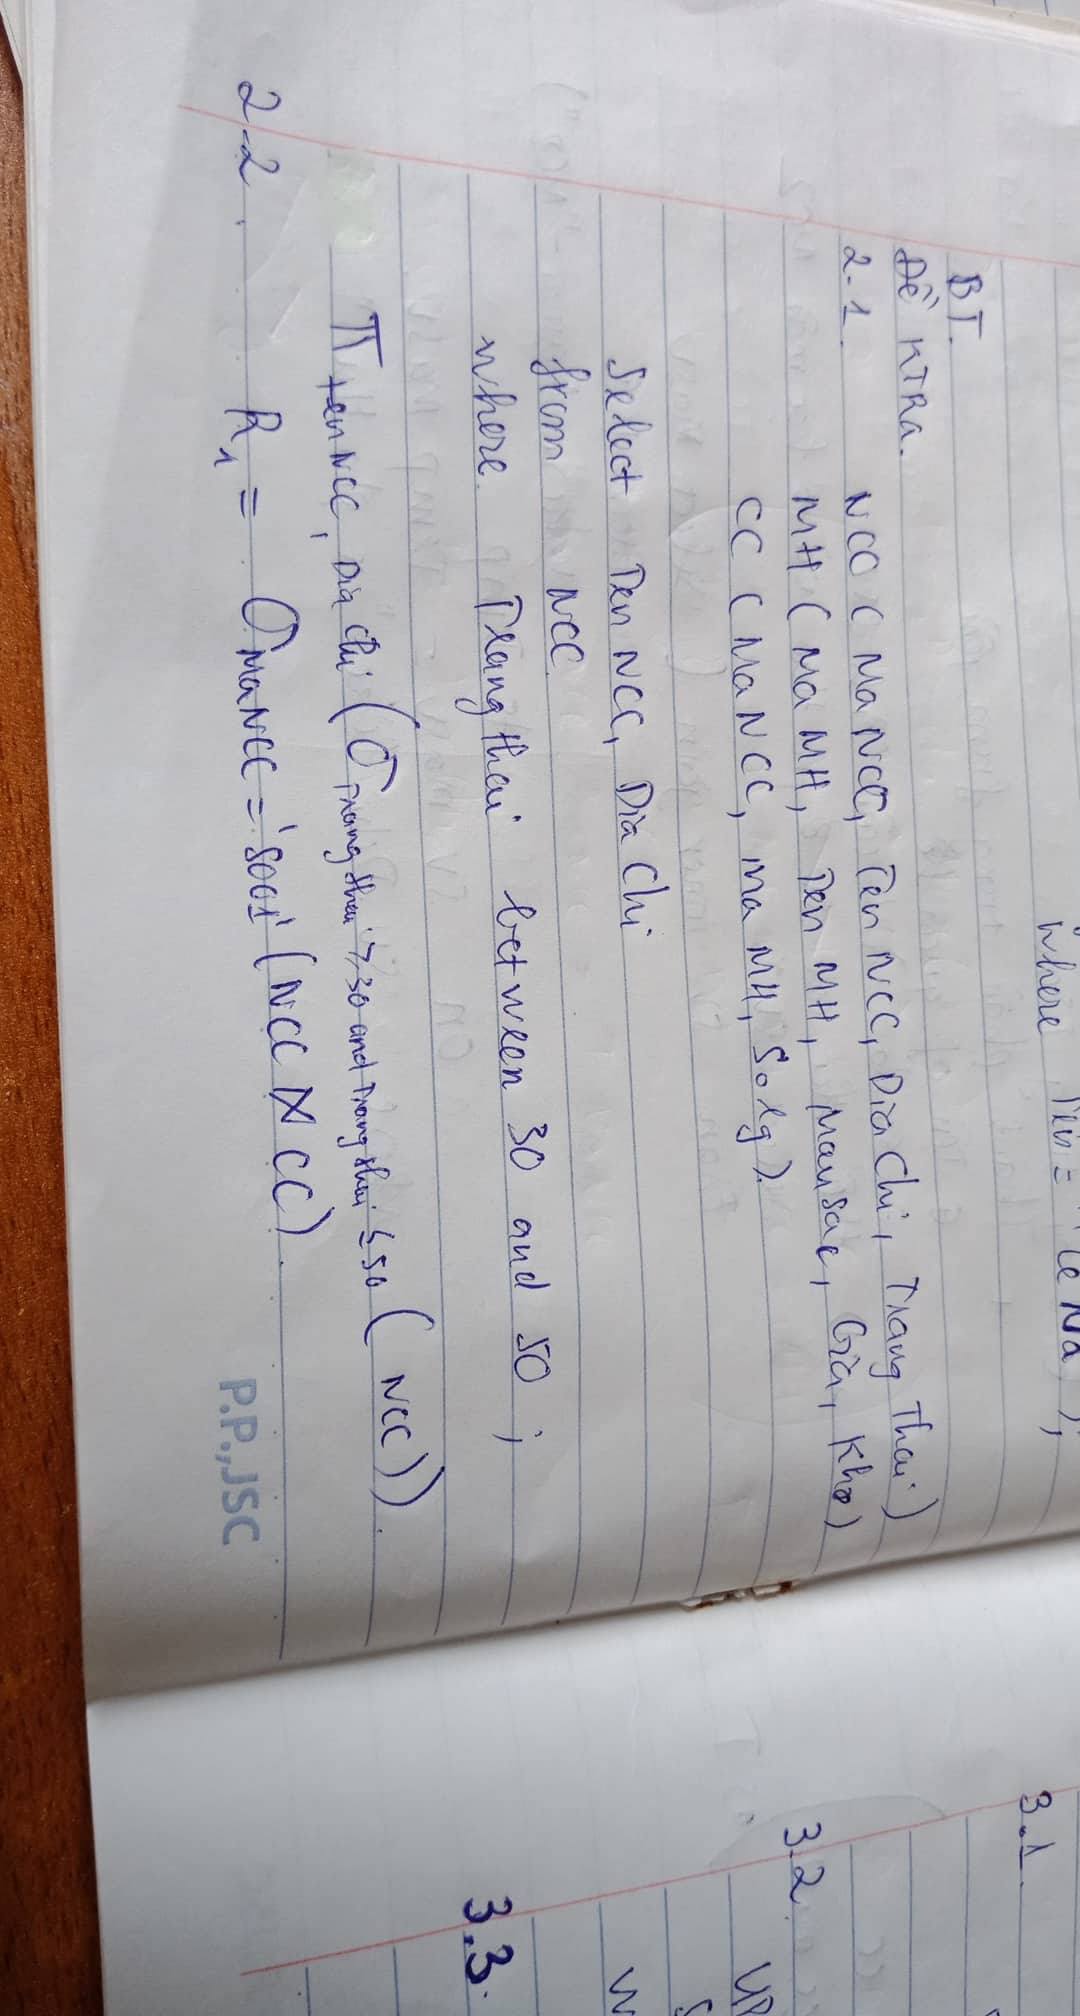 where Ten = 'Le Na');
BT.
Đề KTRa.
2.1 NCC (MaNCC, TenNCC, DiaChi, TrangThai)
MH (MaMH, TenMH, Mausac, Gia, Kho)
CC (MaNCC, MaMH, Solg).
Select TenNCC, DiaChi
from NCC
where Trangthai between 30 and 50;
π tenNCC, Dia chi (σ Trangthai ≥ 30 and Trangthai ≤ 50 (NCC)).
2.2. R1 = σ MaNCC = 'S001' (NCC ⋈ CC).
P.P.,JSC
3.1.
3.2. UP
S
W
3.3.